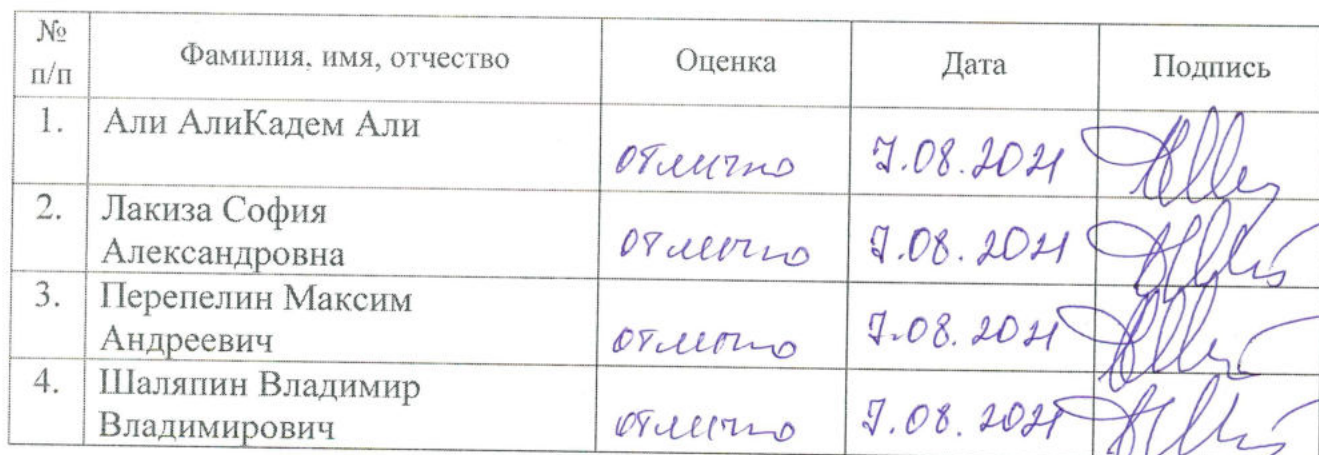 № п/п Фамилия, имя, отчество Оценка Дата Подпись
1. Али АлиКадем Али отлично 7.08.2021
2. Лакиза София
Александровна отлично 7.08.2021
3. Перепелин Максим
Андреевич отлично 7.08.2021
4. Шаляпин Владимир
Владимирович отлично 7.08.2021